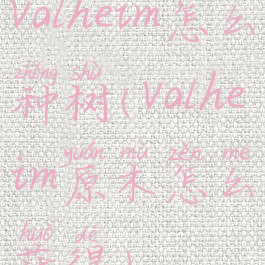 Valheim怎么
zhòng shù
种树(Valhe
yuán mù zěn me
im原木怎么
huò dé
获得)